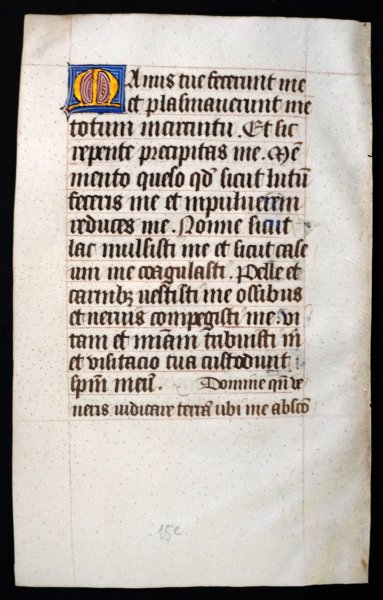 Manus tue fecerunt me
et plasmauerunt me
totum in circuitu. Et sic
repente precipitas me. Mē
mento queso qd̄ sicut lutum
feceris me et in puluerem
reduces me. Nonne sicut
lac mulsisti me et sicut case
um me coagulasti. Pelle et
carnibꝫ uestisti me ossibus
et neruis compegisti me. vi
tam et miām tribuisti m̄
et visitacio tua custodiuit
spm̄ meū. Domine qn̄ ve
neris iudicare terrā ubi me absco
15e